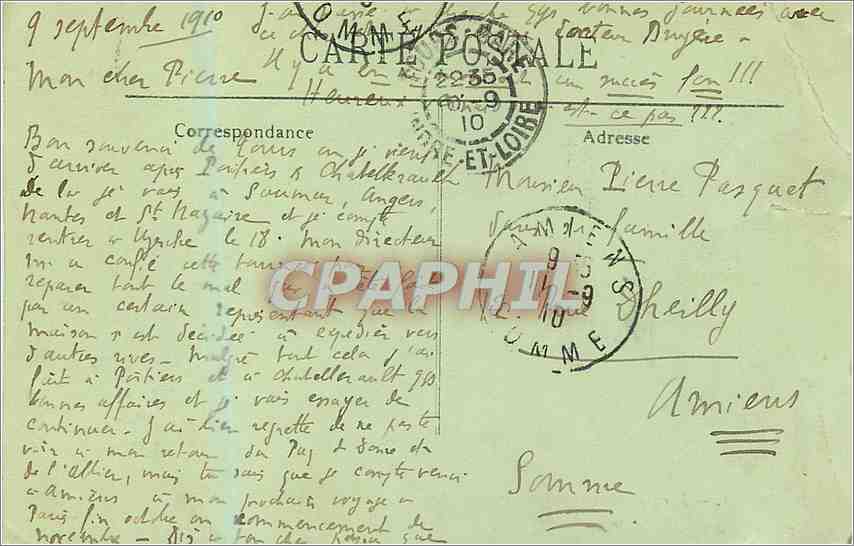 9 septembre 1910
bonnes journées avec
docteur
CARTE POSTALE
Mon cher Pierre
Il y a un succès fou !!!
Heureux est-ce pas ???
TOURS-GARE
22 35
9
10
INDRE-ET-LOIRE
SOMME
Correspondance
Adresse
Bon souvenir de Tours où je viens
d'arriver après Poitiers & Chatellerault
De là je vais à Saumur, Angers,
Nantes et St Nazaire et je compte
rentrer à le 18. Mon directeur
m'a confié cette tournée
réparer tout le mal
par un certain représentant que la
maison s'est décidée à expédier vers
d'autres rives. Malgré tout cela j'ai
fait à Poitiers et à Chatellerault qqs
bonnes affaires et je vais essayer de
continuer. J'ai bien regretté de ne pas te
voir à mon retour du Puy de Dôme et
de l'Allier, mais tu sais que je compte venir
à Amiens à mon prochain voyage à
Paris fin octobre ou commencement de
novembre - Dis à ton cher que
Monsieur Pierre Pasquet
dans sa famille
Rue Dheilly
Amiens
Somme
AMIENS
9
10
SOMME
CPAPHIL